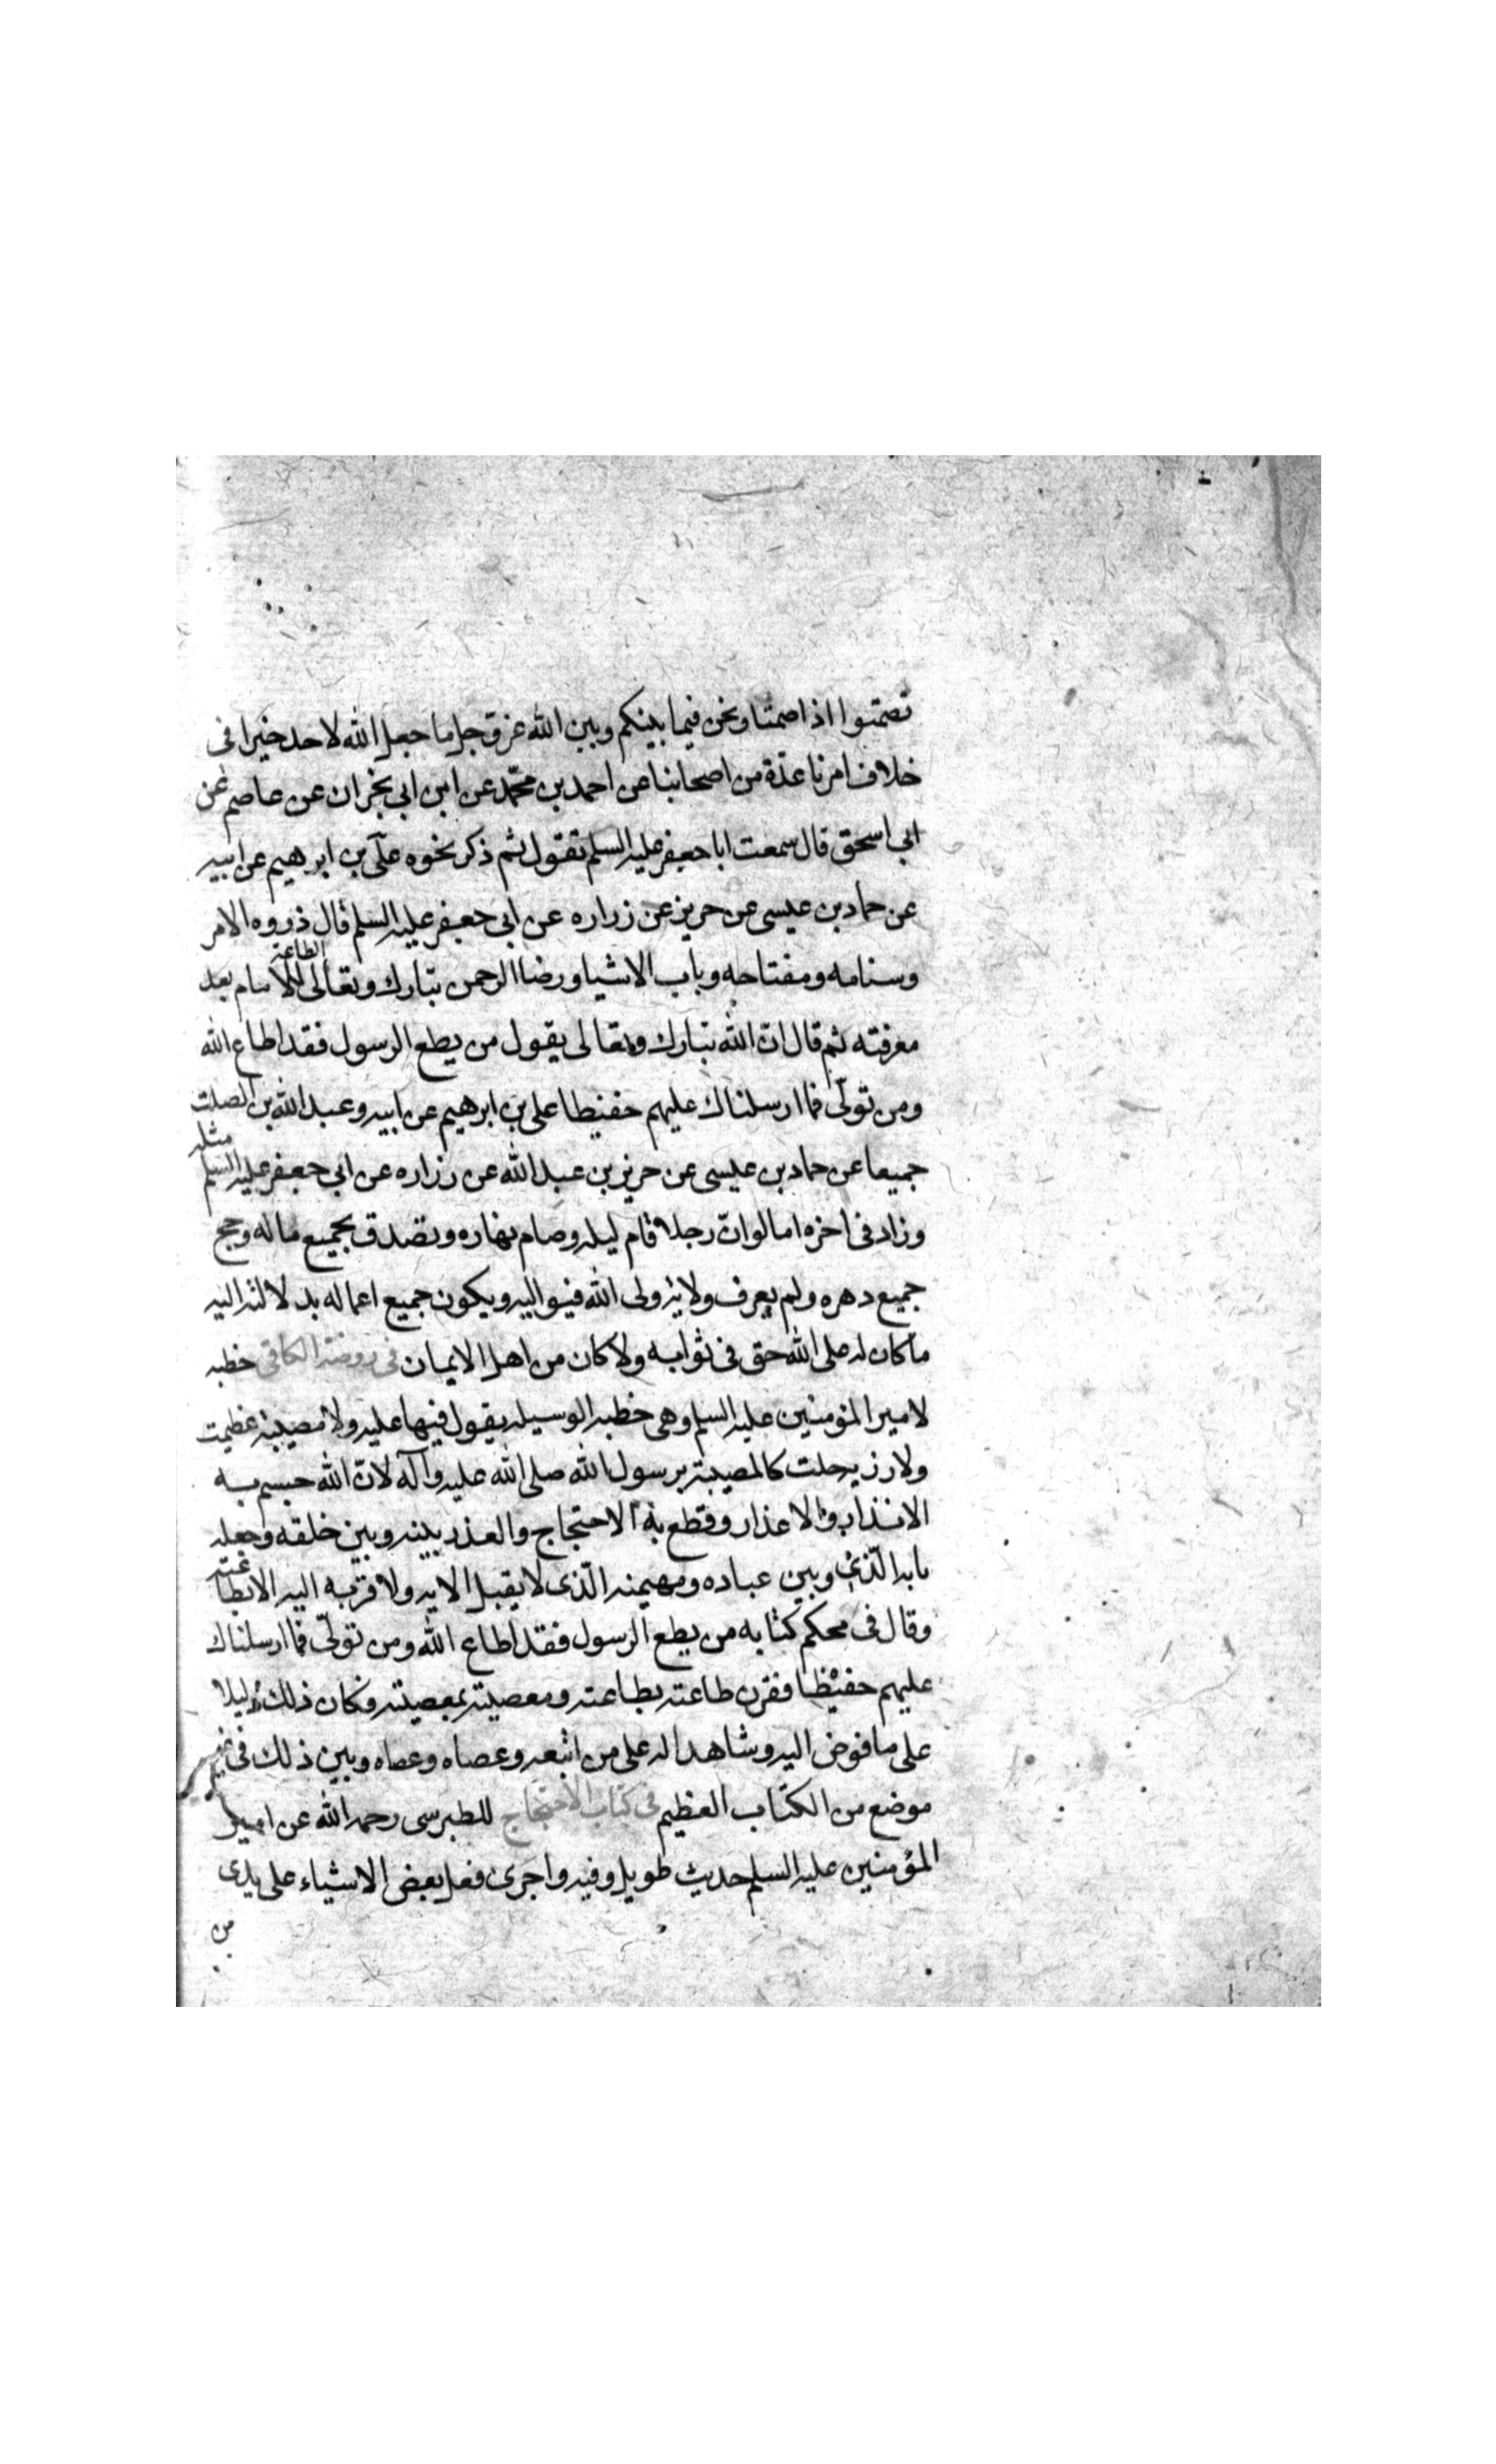 تصمتوا اذا صمتنا ونحن فيما بينكم وبين الله عز وجل ما جعل الله لاحد خيرا فى
خلاف امرنا عدّة من اصحابنا عن احمد بن محمّد عن ابن ابى نجران عن عاصم عن
ابى اسحق قال سمعت ابا جعفر عليه السلم تقول ثم ذكر نحوه علىّ بن ابرهيم عن ابيه
عن حماد بن عيسى عن حريز عن زراره عن ابى جعفر عليه السلم قال ذروه الامر
وسنامه ومفتاحه وباب الاشيا ورضا الرحمن تبارك وتعالى الطاعة للامام بعد
معرفته ثم قال انّ الله تبارك وتعالى يقول من يطع الرسول فقد اطاع الله
ومن تولّى فما ارسلناك عليهم حفيظا على بن ابرهيم عن ابيه وعبد الله بن الصلت
جميعا عن حماد بن عيسى عن حريز بن عبد الله عن زراره عن ابى جعفر عليه السلم مثله
وزاد فى اخره اما لو انّ رجلا قام ليله وصام نهاره وتصدق بجميع ماله وحج
جميع دهره ولم يعرف ولاية ولى الله فيواليه ويكون جميع اعماله بدلالته اليه
ما كان له على الله حق فى ثوابه ولا كان من اهل الايمان فى روضة الكافى خطبه
لامير المؤمنين عليه السلم وهى خطبه الوسيله يقول فيها عليه ولا مصيبة عظمت
ولا رزيه جلت كالمصيبة برسول الله صلى الله عليه وآله لانّ الله حسم به
الانذار والاعذار وقطع به الاحتجاج والعذر بينه وبين خلقه وجعله
بابه الّذى وبين عباده ومهيمنه الّذى لا يقبل الا به ولا قربه اليه الا بطاعته
وقال فى محكم كتابه من يطع الرسول فقد اطاع الله ومن تولّى فما ارسلناك
عليهم حفيظا فقرن طاعته بطاعته ومعصيته بمعصيته فكان ذلك دليلا
على ما فوض اليه وشاهدا له على من اتبعه وعصاه وعصاه وبين ذلك فى غير
موضع من الكتاب العظيم فى كتاب الاحتجاج للطبرسى رحمه الله عن امير
المؤمنين عليه السلم حديث طويل وفيه واجرى فعل بعض الاشياء على يدى
من